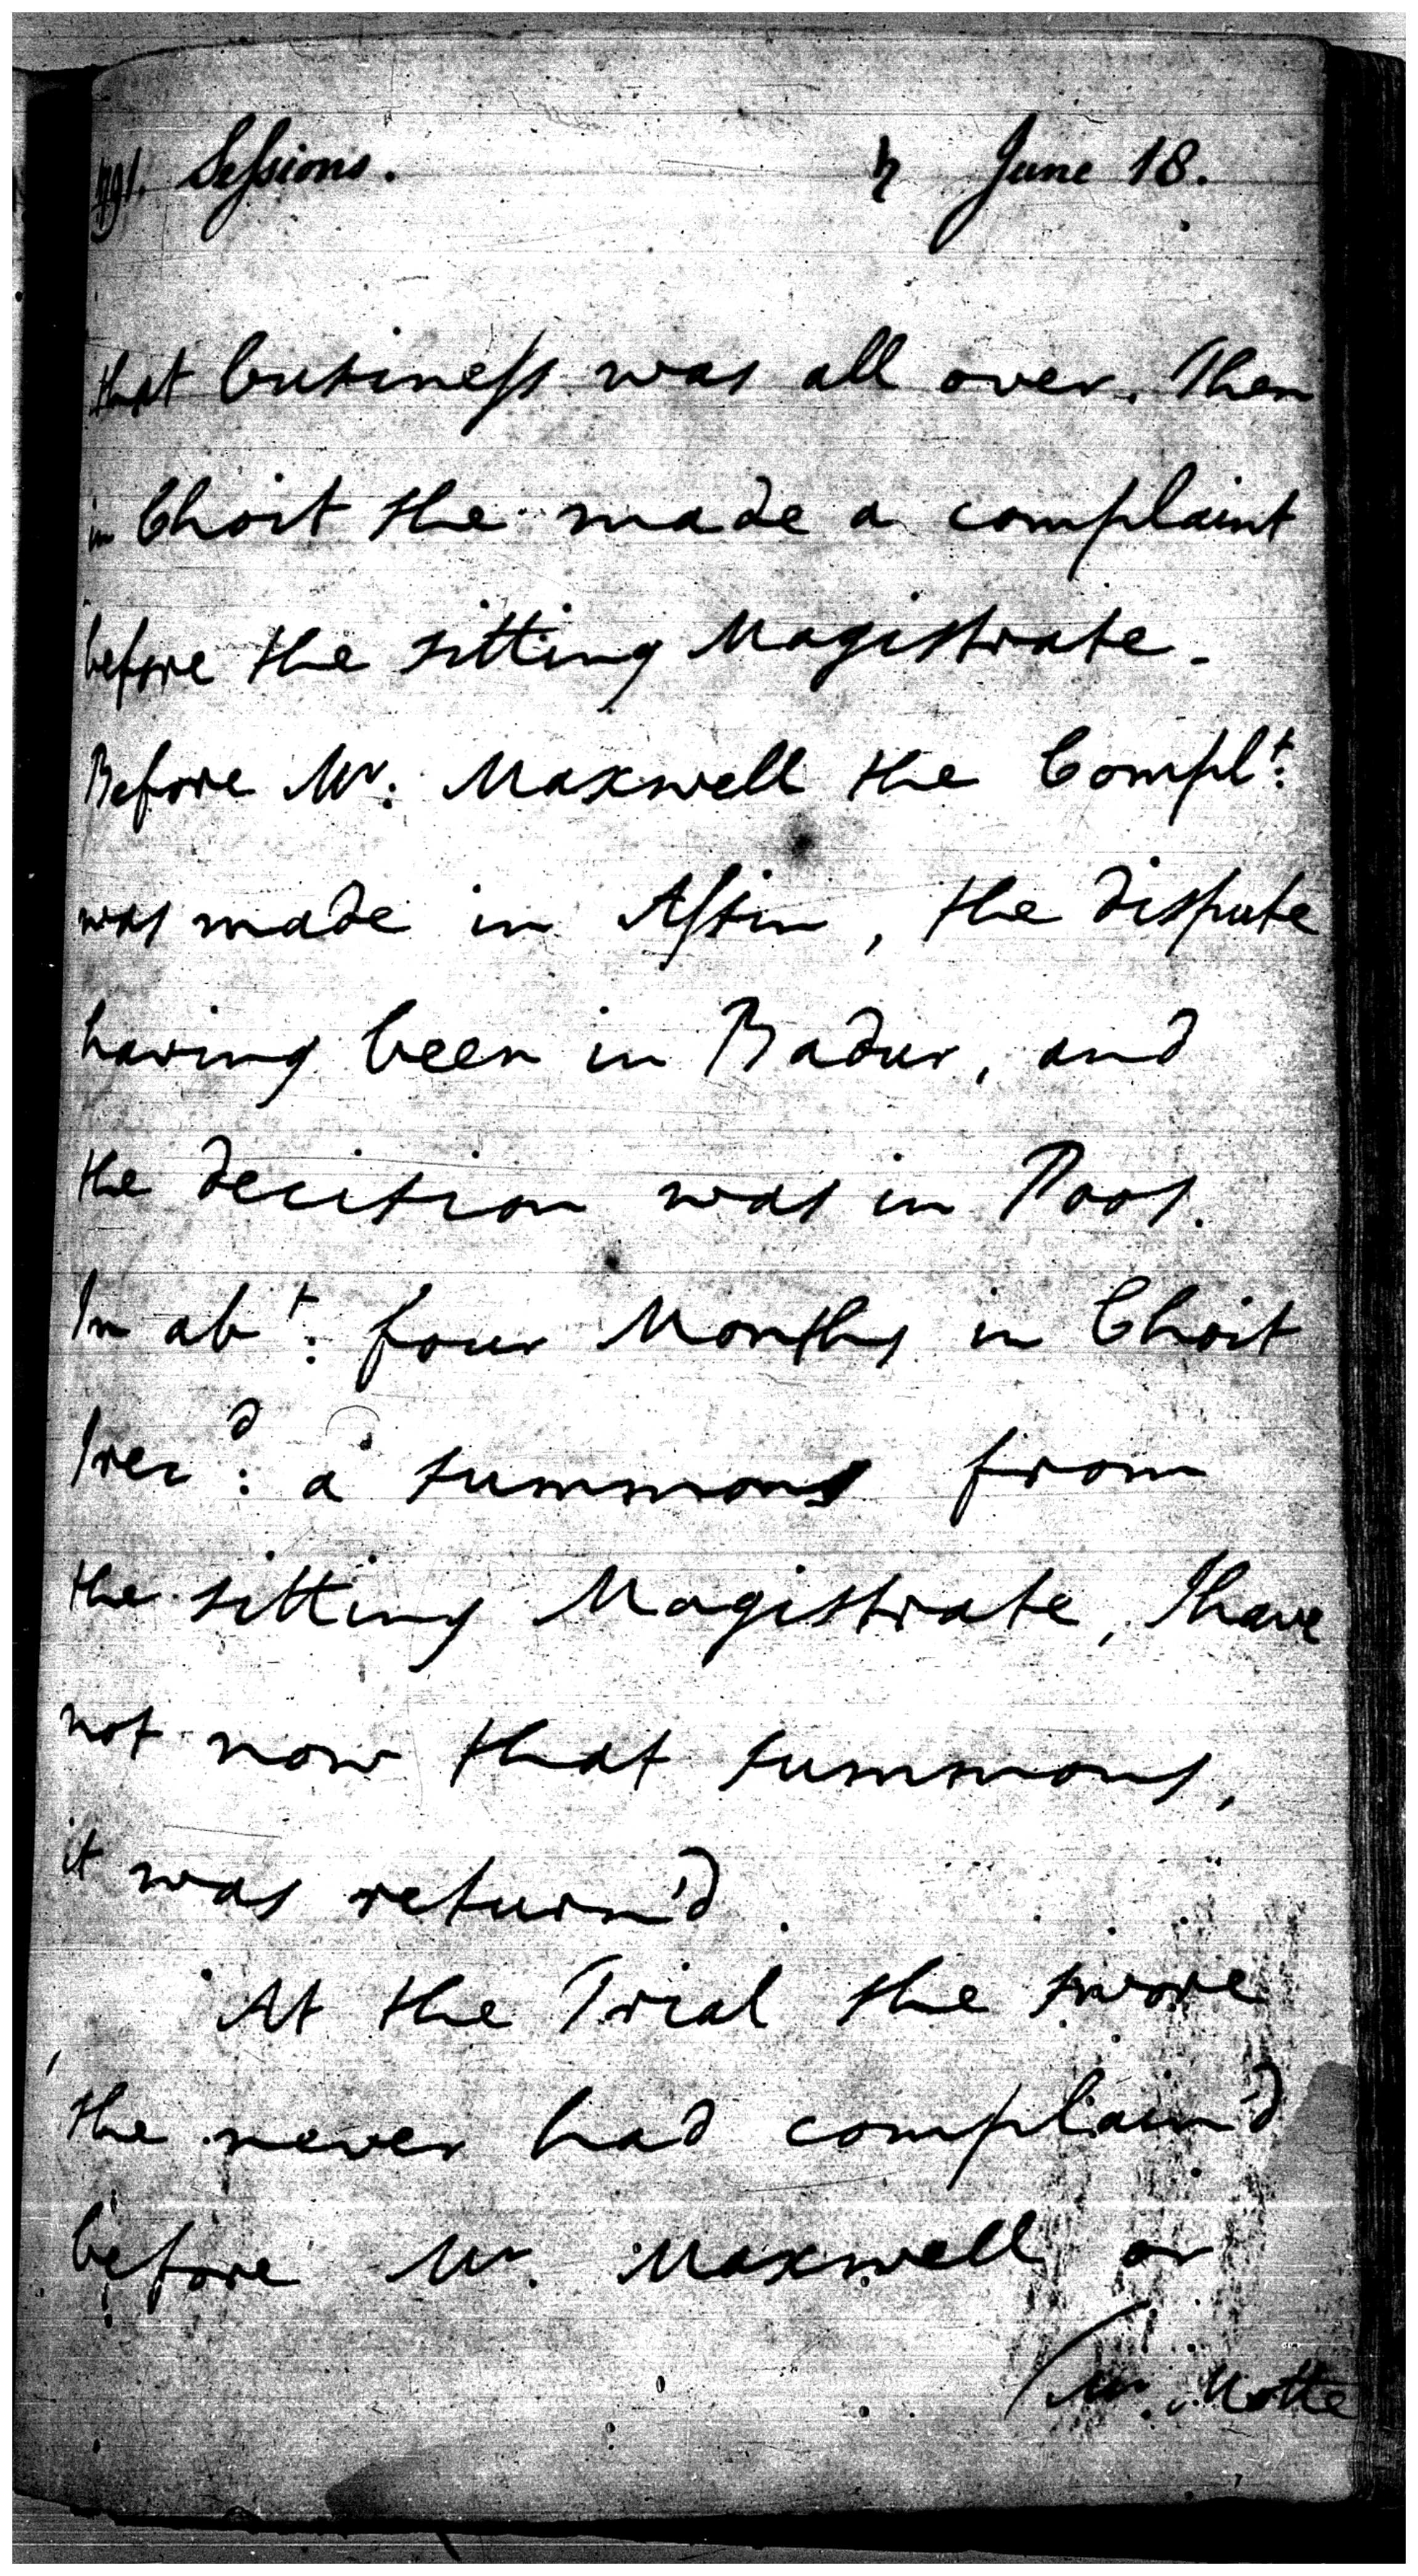 1791. Sessions. ♄ June 18.
that business was all over. Then
in Choit she made a complaint
before the sitting Magistrate.
Before Mr. Maxwell the Complt:
was made in Assin, the dispute
having been in Badur, and
the decision was in Poos.
In abt: four Months in Choit
I recd: a summons from
the sitting Magistrate, I have
not now that summons,
it was return'd.
At the Trial she swore
she never had complain'd
before Mr. Maxwell or
Mr. Motte